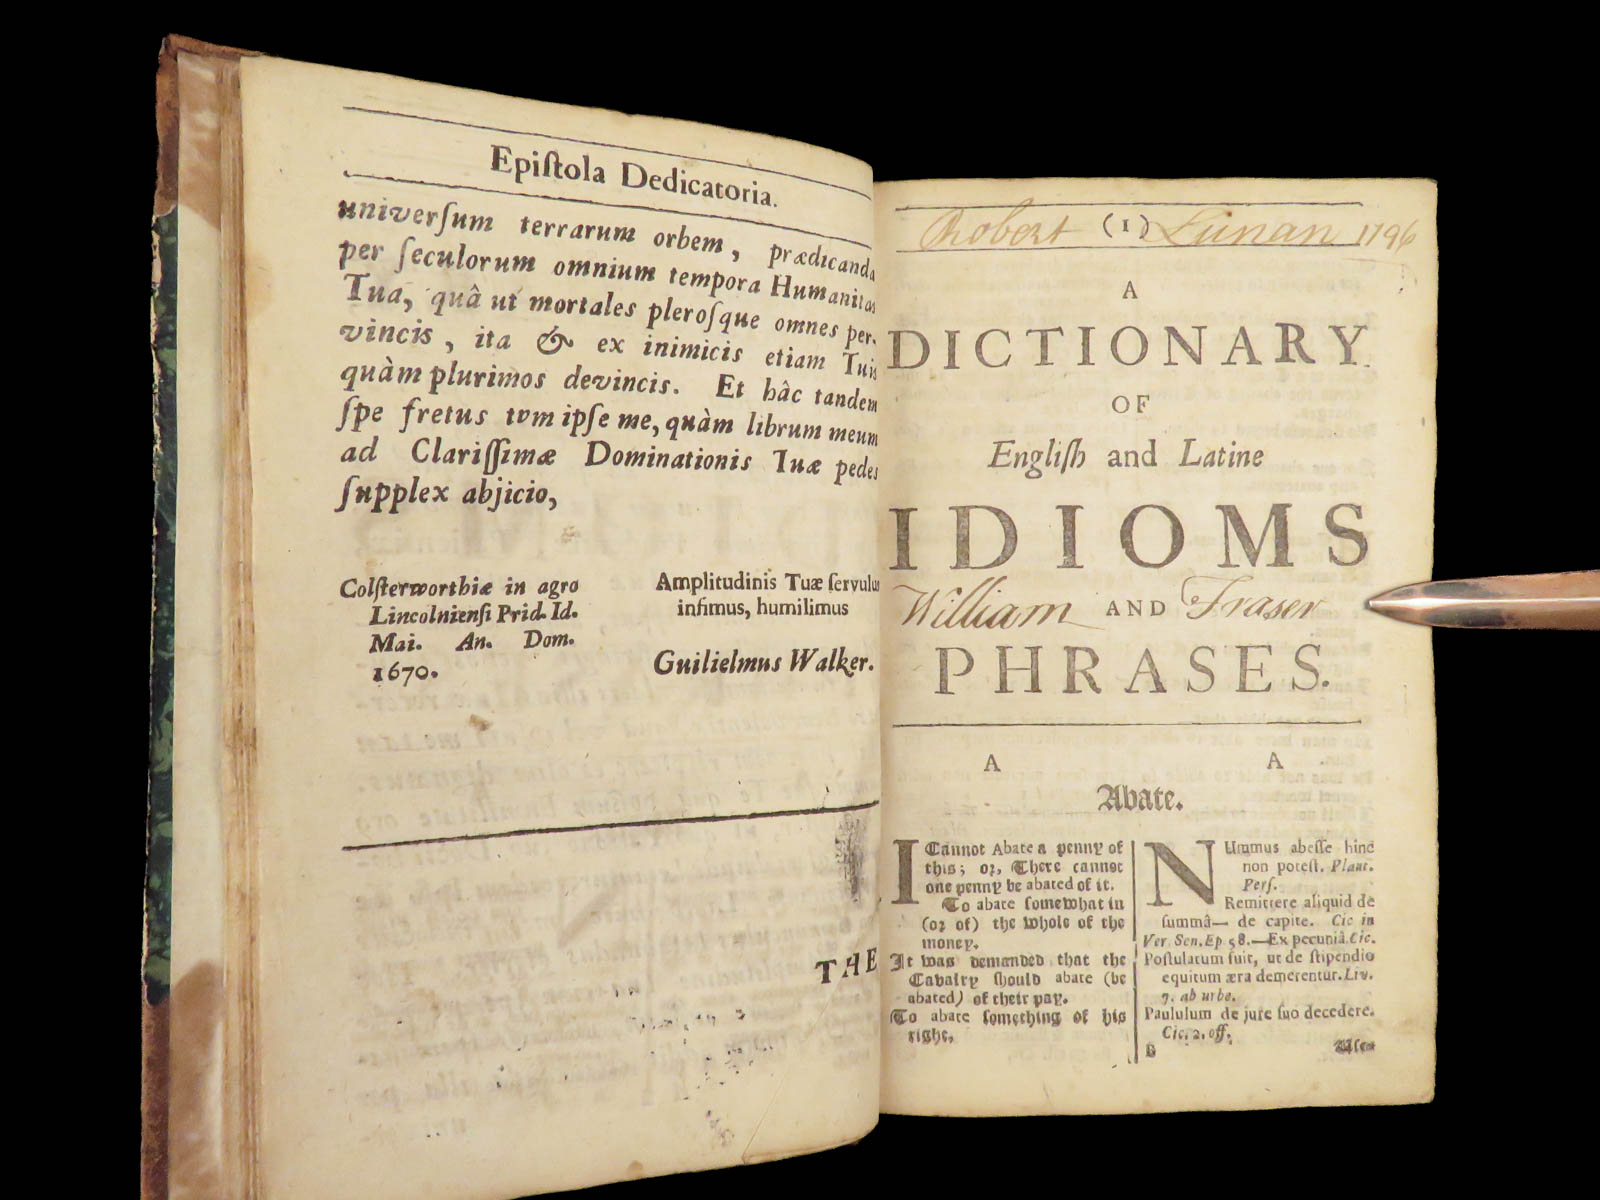 Epiſtola Dedicatoria.
univerſum terrarum orbem, prædicanda
per ſeculorum omnium tempora Humanitas
Tua, quâ ut mortales pleroſque omnes per-
vincis, ita & ex inimicis etiam Tuis
quàm plurimos devincis. Et hâc tandem
ſpe fretus tum ipſe me, quàm librum meum
ad Clariſſimæ Dominationis Tuæ pedes
ſupplex abjicio,
Colſterworthiæ in agro
Lincolnienſi Prid. Id.
Mai. An. Dom.
1670.
Amplitudinis Tuæ ſervulus
infimus, humilimus
Guilielmus Walker.
THE
Robert (1) Lunan 1796
A
DICTIONARY
OF
Engliſh and Latine
IDIOMS
William AND Fraser
PHRASES.
A A
Abate.
I Cannot Abate a penny of
this; or, There cannot
one penny be abated of it.
To abate ſomewhat in
(or of) the whole of the
money.
It was demanded that the
Cavalry ſhould abate (be
abated) of their pay.
To abate ſomething of his
right.
NUmmus abeſſe hinc
non poteſt. Plaut.
Perſ.
Remittere aliquid de
ſummâ— de capite. Cic in
Ver. Sen. Ep. 58.—Ex pecuniâ Cic.
Poſtulatum fuit, ut de ſtipendio
equitum æra demerentur. Liv.
7. ab urbe.
Paululum de jure ſuo decedere.
Cic. 2. off.
B